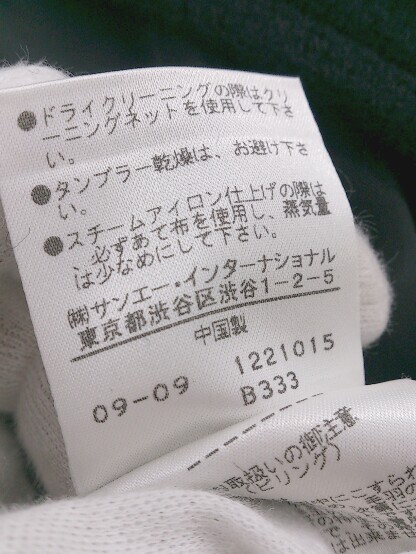 ●ドライクリーニングの際はクリ
ーニングネットを使用して下さ
い。
●タンブラー乾燥は、お避け下さ
い。
●スチームアイロン仕上げの際は
必ずあて布を使用し、蒸気量
は少なめにして下さい。
㈱サンエー・インターナショナル
東京都渋谷区渋谷1-2-5
中国製
09-09 1221015
B333
お取扱いの御注意
(ピリング)